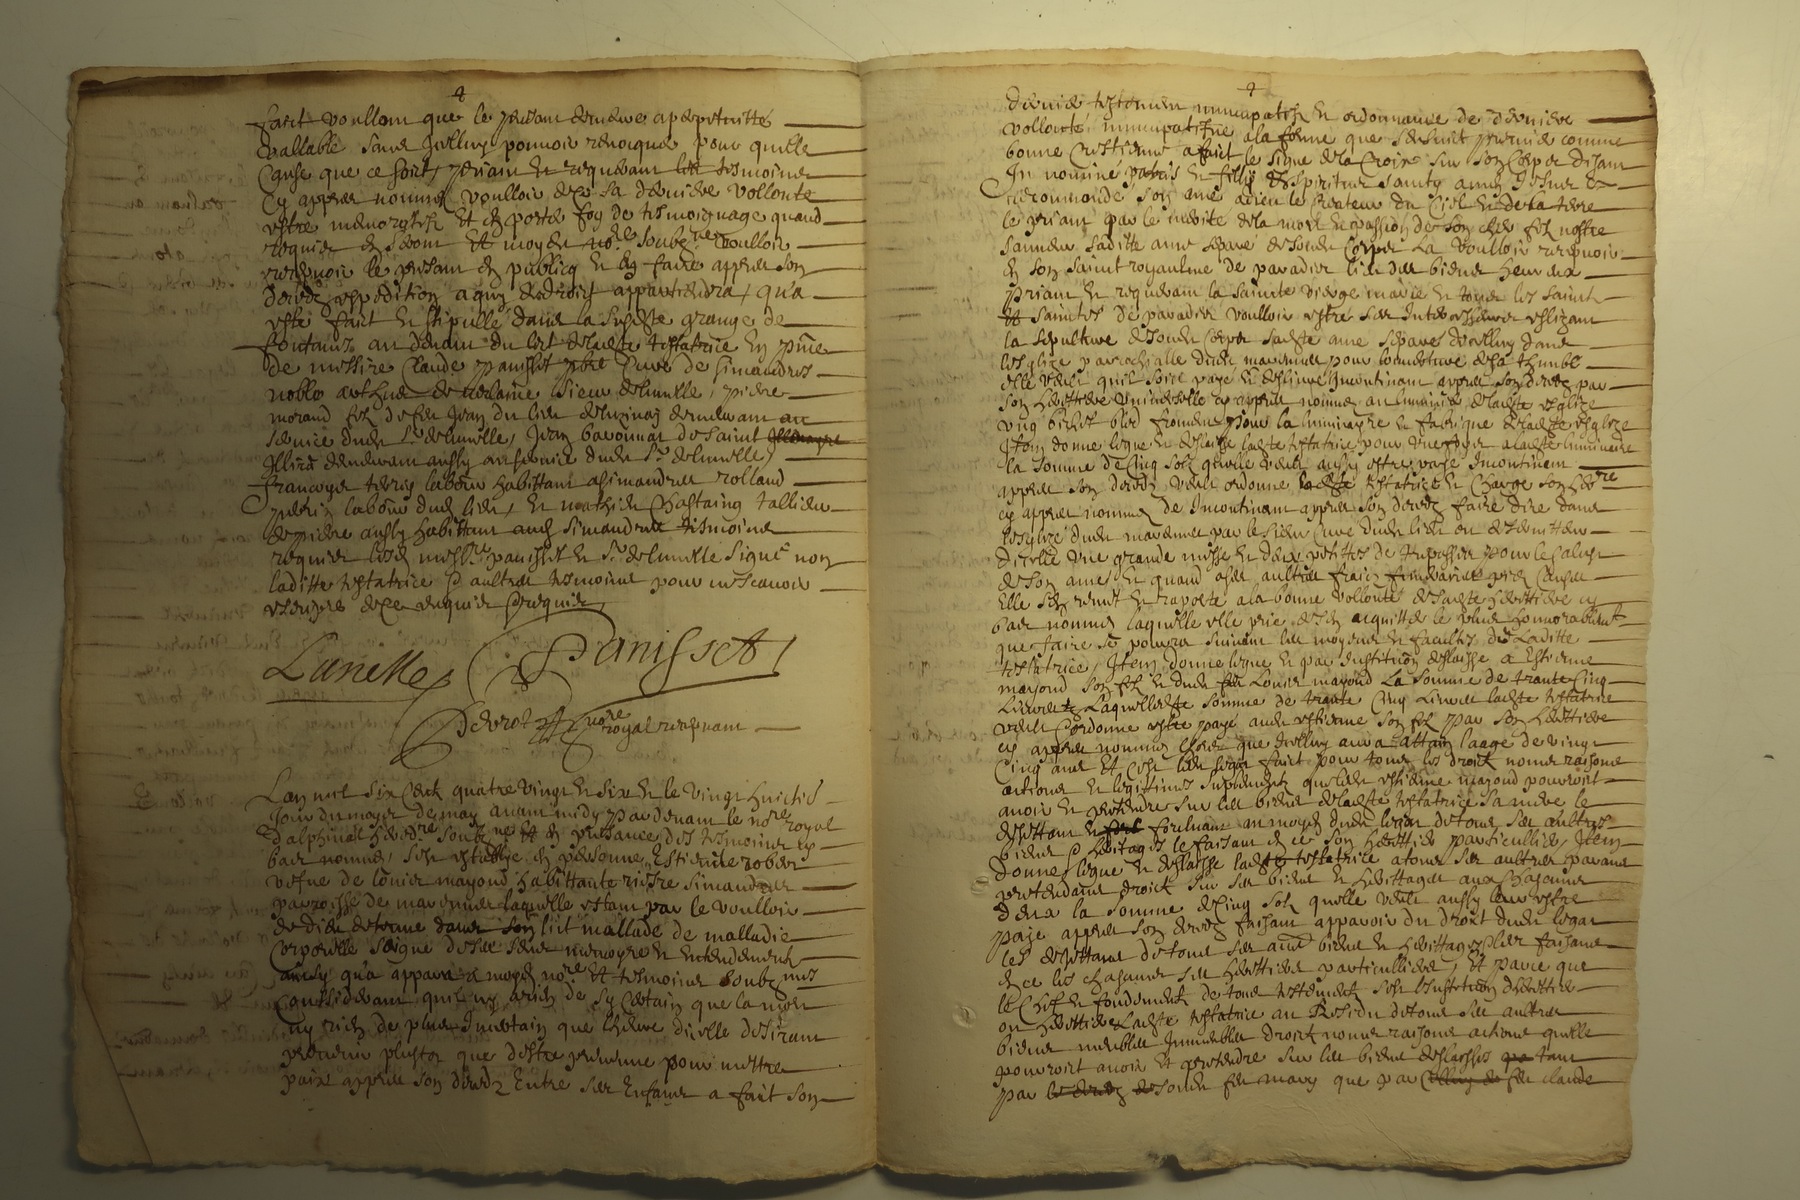 4
faict voullant que le present demeure a perpetuitté
vallable sans quelluy pouvoir revocquer pour quelle
cause que ce soit, priant et requerant les tesmoins
cy appres nommés voulloir de sa derniere vollonté
estre memoratifz et en porter foy de tesmoignage quand
requis en seront et moyen no.re soubz.ne voulloir
recepvoir le present en publicq et en faire appres son
deceds expedition a quy de droict appartiendra, qu'a
esté faict et stipullé dans la grange de
fontaine au devant du lict de ladte testatrice en pnce
de messire Claude panisset pbre Curé de simandres
noble sieur de lunelle, pierre
morand filz de feu Jean du lieu de demeurant au
service dudit Sr de lunelle, Jean de saint
demeurant aussy au service dudit Sr de lunelle,
francoys labour habittant a simandres rolland
labour dud lieu, et mathieu Chastaing tallieur
de pierre aussy habittant aud simandres tesmoins
requis lesd messre panisset et Sr de lunelle signé non
laditte testatrice et aultres tesmoins pour ne scavoir
escripre de ce enquis et requis
Lunelle Panisset
nore royal recepvant
L'an mil six Centz quatre vingt et six et le vingt huictie
Jour du moys de may avant midy par devant le nore royal
dalphinal heredre soubzne et en presance des tesmoins cy
bas nommés, s'est establye en personne Estiennte robert
vefve de louis mayoud habittante riere simandres
parroisse de marennes laquelle estant par le voulloir
de dieu detenue dans son lict mallade de malladie
corporelle saigne de ses sens memoyre et entendement
ainsy qu'a apparu a moyd nore et tesmoins soubznes
Considerant qu'il ny a rien de sy certain que la mort
ny rien de plus incertain que l'heure dicelle desirant
prevenir plustot que d'estre prevenue pour mettre
paix appres son deceds Entre ses Enfans a faict son
4
dernier testament nuncupatifz et ordonnance de derniere
vollonté nuncupative a la forme que s'ensuit premier comme
bonne crestienne a faict le signe de la Croix sur son Corps disant
In nomine patris et filly et spiritus sancty amen Jesus et
recommandé son ame a dieu le createur du Ciel et de la terre
le priant par le merite de la mort et passion de son cher filz nostre
sauveur sadite ame separé de sondit Corps La voulloir recepvoir
en son saint royaulme de paradis lieu des biens heureux
priant et requerant la saincte vierge marie et tous les saints
et saintes de paradis voulloir estre ses Intercesseurs eslizant
la sepulture de sondit corps sadte ame separé d'icelluy dans
l'esglize parrochialle dudit marennes pour
elle veult qu'il soict payé et deslivré Incontinant appres son deceds par
son heritiere universelle cy appres nommée au luminaire de ladte esglize
ung bichet bled froment pour la luminayre et fabrique de ladte esglize
Item donne legue et deslaisse ladte testatrice pour a ladte luminaire
la somme de Cinq solz qu'elle veult aussy estre payé Incontinent
appres son deceds veult ordonne ladte testatrice et charge son herre
cy appres nommée de Incontinant appres son deceds faire dire dans
l'esglize dudit marennes par le sieur Curé dudit lieu ou
dicelle une grande messe et deux petittes de trepasses pour le salut
de son ame, et quand a ses aultres fraiz funeraires
Elle s'en remet et raporte a la bonne vollonté de sadte heritiere cy
bas nommée laquelle elle prie de s'en acquitter le plus honnorablemt
que faire se pourra suivant les moyens et facultés de Laditte
testatrice, Item donne legue et par Institution deslaisse a Estienne
mayoud son filz et dudit feu Louis mayoud La somme de trante Cinq
Livres Laquelledte somme de trante Cinq Livres ladte testatrice
veult et ordonne estre payé audit estienne son filz par son heritiere
cy appres nommée lhors que icelluy aura attain l'aage de vingt
Cinq ans Et c'est faict pour tous les droictz noms raisons
actions et legitimes supplementz que ledit estienne mayoud pourroit
avoir et pretendre sur les biens de ladte testatrice sa mere le
dejettant et forcluant au moyen dudit legat de tous ses aultres
biens et heritages le faisant en ce son heritier particullier, Item
donne legue et deslaisse ladte testatrice a tous ses aultres parans
pretendans droict sur ses biens et heritages aux Chascuns
d'eux la somme de Cinq solz quelle veult aussy leur estre
payé appres son deceds faisant apparoir du droict dudit legat
les dejettans de tous ses autres biens et heritages les faisans
en ce les chascuns ses heritiers particulliers, Et parce que
le Chef et fondement de tous testements est l'institution d'heritier
ou heritiere Ladte testatrice au Residu de tous ses aultres
biens meubles Immeubles droictz noms raisons actions quelle
pourroit avoir et pretendre sur les biens deslaissés tant
par sondit feu mary que par feu claude